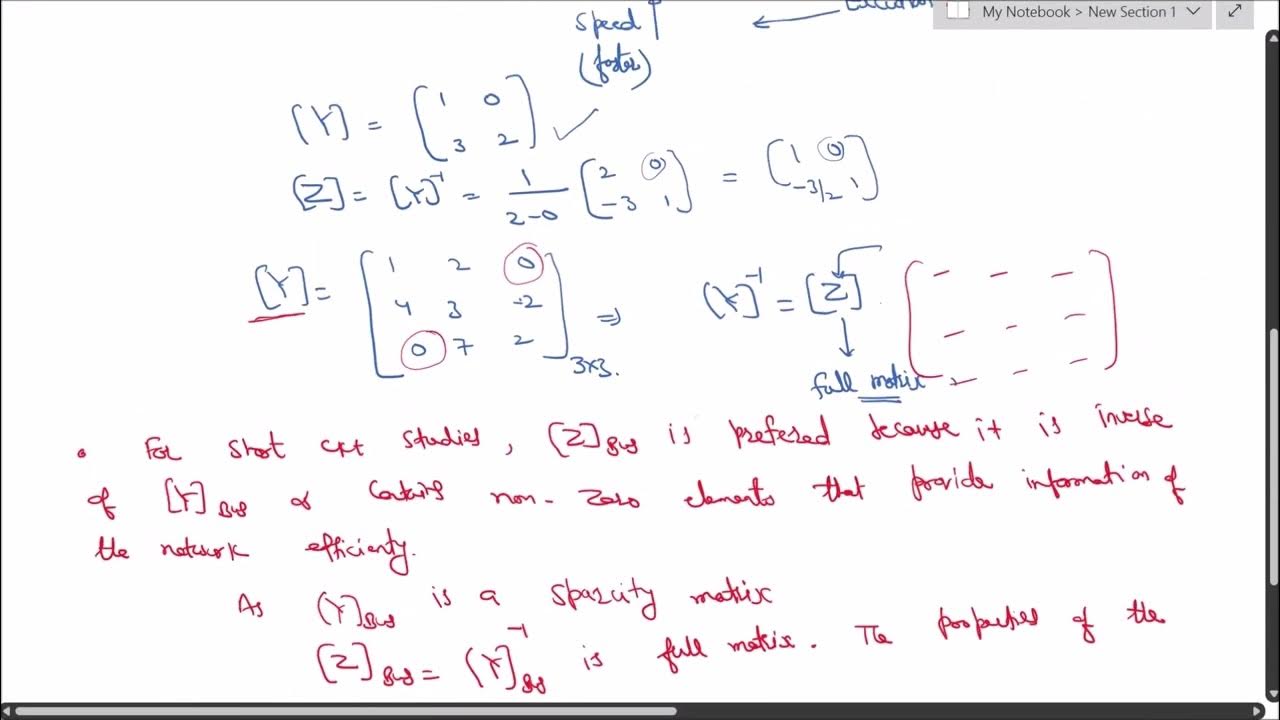 My Notebook > New Section 1
Speed ↑
(faster)
[Y] = [1 0
3 2] ✓
[Z] = [Y]⁻¹ = 1/(2-0) [2 0
-3 1] = [1 0
-3/2 1]
[Y] = [1 2 0
4 3 -2
0 7 2]3×3. ⇒ [Y]⁻¹ = [Z] [- - -
- - -
- - -]
full matrix
• For short ckt studies, [Z]Bus is prefered because it is inverse
of [Y]Bus & contains non-zero elements that provide information of
the network efficienty.
As [Y]Bus is a sparcity matrix
[Z]Bus = [Y]⁻¹Bus is full matrix. The properties of the